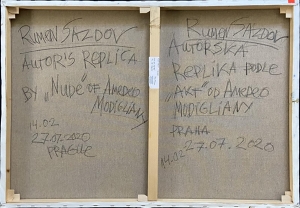 RUMEN SAZDOV
AUTORIS REPLICA
BY „NUDE" OF AMEDEO
MODIGLIANY
14.02
27.07.2020
PRAGUE
RUMEN SAZDOV
AUTORSKA
REPLIKA PODLE
„AKT" OD AMEDEO
MODIGLIANY
PRAHA
14.02 27.07.2020